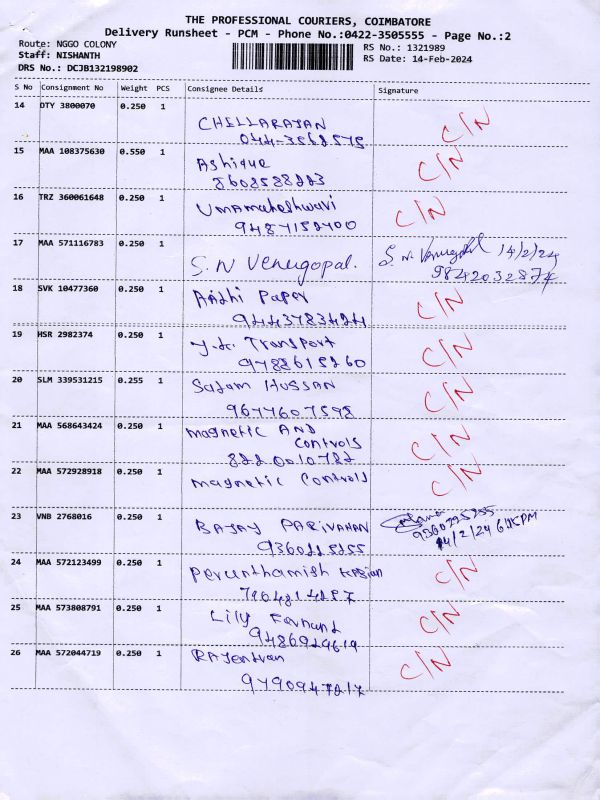 THE PROFESSIONAL COURIERS, COIMBATORE
Delivery Runsheet - PCM - Phone No.:0422-3505555 - Page No.:2
Route: NGGO COLONY
RS No.: 1321989
Staff: NISHANTH
RS Date: 14-Feb-2024
DRS No.: DCJB132198902
S No Consignment No Weight PCS Consignee Details Signature
14 DTY 3800070 0.250 1
CHELLARAJAN C/N
044-3562575
15 MAA 108375630 0.550 1
Ashique C/N
8608588223
16 TRZ 360061648 0.250 1
Umamaheshwari C/N
9487152400
17 MAA 571116783 0.250 1
S.N Venugopal. S.N. Venugopal 14/2/24
9842032874
18 SVK 10477360 0.250 1
Paper C/N
9443783424
19 HSR 2982374 0.250 1
Transport C/N
9788615260
20 SLM 339531215 0.255 1
Salam HUSSAN C/N
9677607598
21 MAA 568643424 0.250 1
magnetic AND C/N
Controls
8220010782
22 MAA 572928918 0.250 1
magnetic Controls C/N
23 VNB 2768016 0.250 1
BAJAY PARIVAHAN
9360225255 14/2/24
24 MAA 572123499 0.250 1
C/N
25 MAA 573808791 0.250 1
Lily C/N
9486929619
26 MAA 572044719 0.250 1
C/N
9790947217